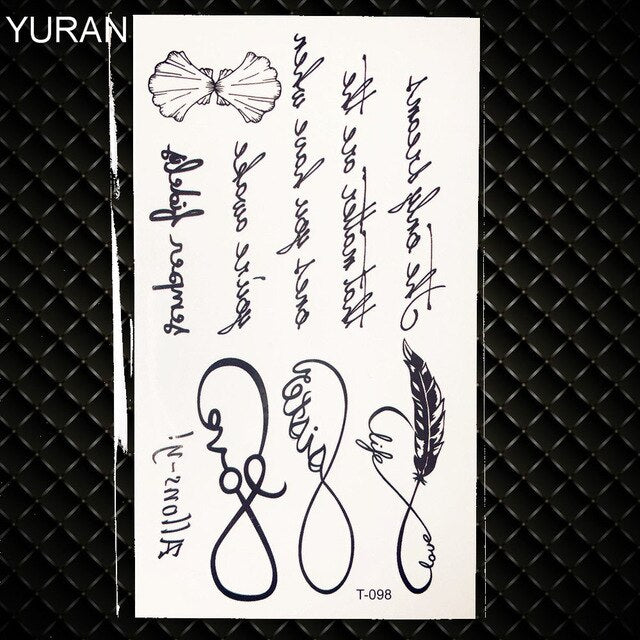 YURAN
The only dreams
that matter are the
ones you have when
you're awake
semper fidelis
life
love
sister
love
Allons-y!
T-098